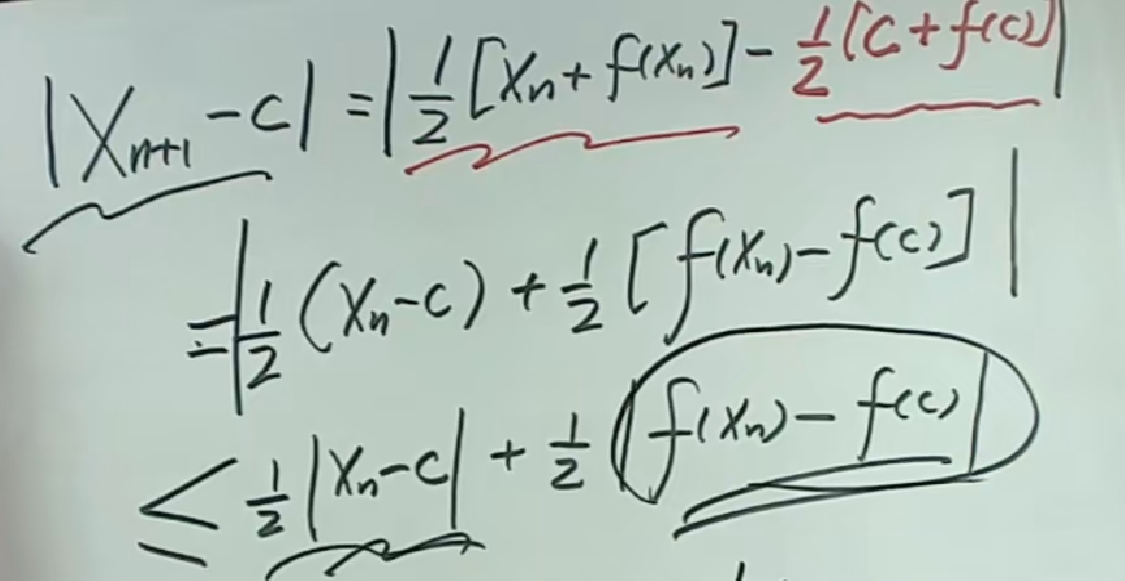 |X_{n+1} - c| = |\frac{1}{2}[X_n + f(X_n)] - \frac{1}{2}[C + f(c)]|
= |\frac{1}{2}(X_n - c) + \frac{1}{2}[f(X_n) - f(c)]|
≤ \frac{1}{2}|X_n - c| + \frac{1}{2}|f(X_n) - f(c)|